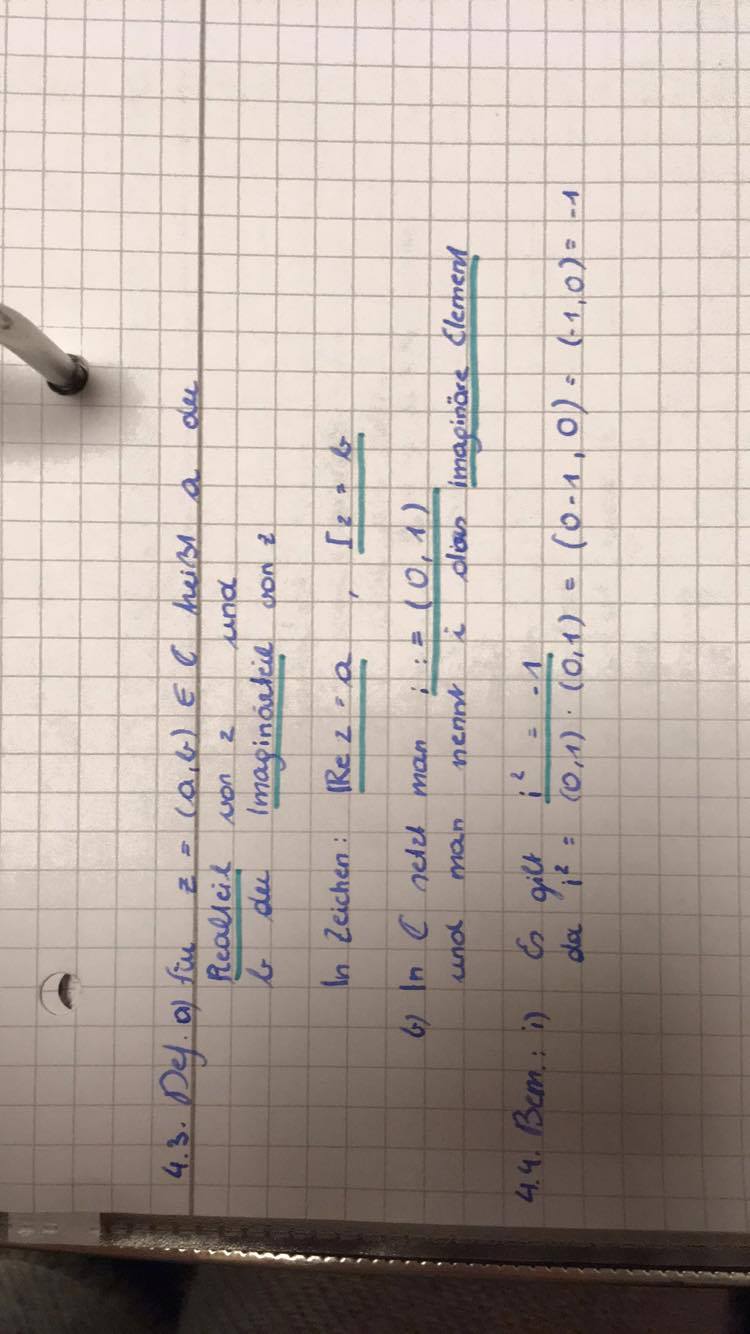 4.3. Def. a) für z = (a,b) ∈ ℂ heißt a der
Realteil von z und
b der Imaginärteil von z
In Zeichen: Re z = a , I z = b
b) In ℂ setzt man i := (0,1)
und man nennt i das imaginäre Element
4.4. Bem.: i) Es gilt i² = -1
da i² = (0,1) · (0,1) = (0-1, 0) = (-1,0) = -1